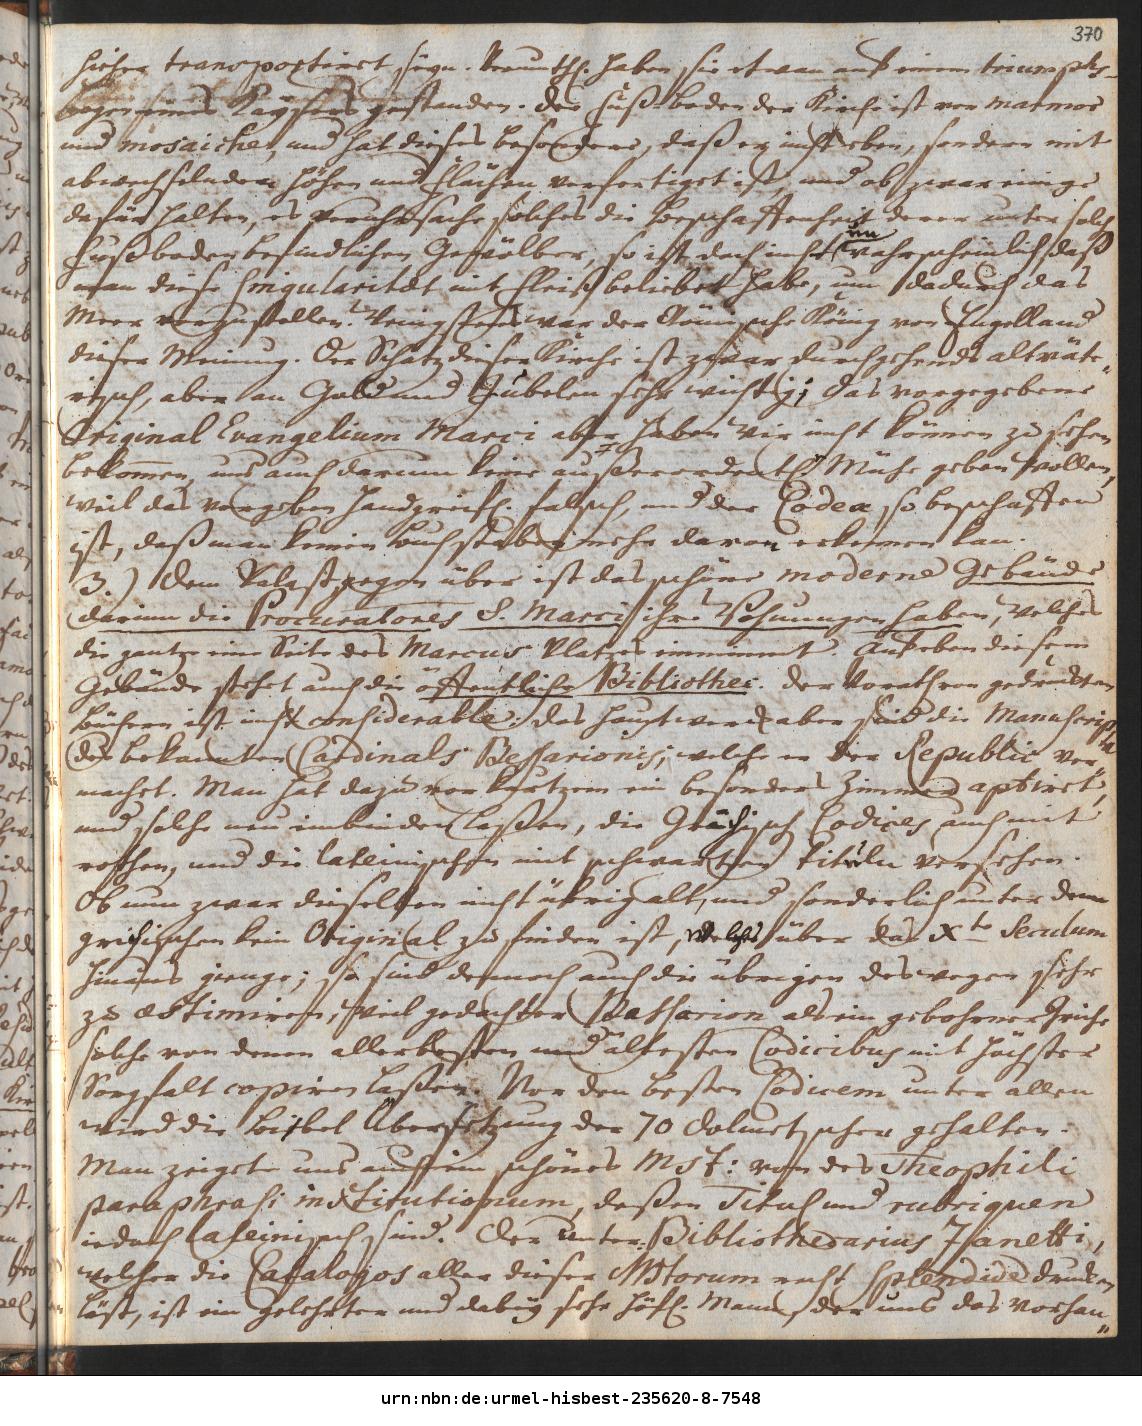 370
hieher transportiret seyn. Vermuthl. haben sie etwan auf einem triumph-
bogen eines Kaysers gestanden. Der Fuß-boden der Kirche ist von marmor
und mosaischer, und hat dieses besonders, daß er nicht eben, sondern mit
abwechselnden Höhen und Flächen verfertiget ist, und ob zwar einige
dafür halten, es veruhrsache solches die Beschaffenheit derer unter solch
Fußboden befindlichen Gewölber, so ist doch nicht unwahrscheinlich daß
man diese singularitæt mit Fleiß beliebet habe, um dadurch das
Meer vorzustellen. Wenigstens war der Dänische König von Engelland
dieser Meinung. Der Schatz dieser Kirche ist zwar durchgehends altväte"
risch, aber an Gold und Jubelen sehr wichtig; das vorgegebene
Original Evangelium Marci aber haben wir nicht können zu sehen
bekommen, uns auch darum keine außerordentl. Mühe geben wollen,
weil das vorgeben handgreifl. falsch, und der Codex so beschaffen
ist, daß man keinen buchstaben mehr davon erkennen kan.
3.) Dem Palast gegen über ist das schöne moderne Gebäude
darinn die Procuratores S. Marci ihre Wohnungen haben, welches
die gantze eine Seite des Marcus Platzes einnimmt. An eben diesem
Gebäude stehet auch die öffentliche Bibliothec. Der Vorath von gedruckten
Büchern ist nicht considerable: das Hauptwerck aber sind die Manuscripta
des bekannten Cardinals Bessarionis, welche er der Republic ver"
machet. Man hat dazu vor kurtzem ein besonders Zimmer aptiret,
und solche neu einbinden laßen, die Grichisch Codices auch mit
rothen, und die lateinischen mit schwartzen Tituln versehen.
Ob nun zwar dieselben nicht übrig alt, und sonderlich unter den
grichischen kein Original zu finden ist, welches über das Xte Seculum
hinaus gienge; so sind dennoch auch die übrigen deswegen sehr
zu æstimiren, weil gedachter Bessarion als ein gebohrner Griche
solche von denen allerbesten und ältesten Codicibus mit höchster
Sorgfalt copiren laßen. Vor den besten Codicem unter allen
wird die Bibel Übersetzung der 70 Dolmetscher gehalten.
Man zeigete uns auch ein schönes Mst: von des Theophili
paraphrasi institutionum, deßen Titul und rubriquen
iedoch lateinisch sind. Der unter-Bibliothecarius Zanetti,
welcher die Catalogos aller dieser MStorum recht splendide drucken
läst, ist ein gelehrter und dabey sehr höfl. Mann, der uns das vorhan"
urn:nbn:de:urmel-hisbest-235620-8-7548